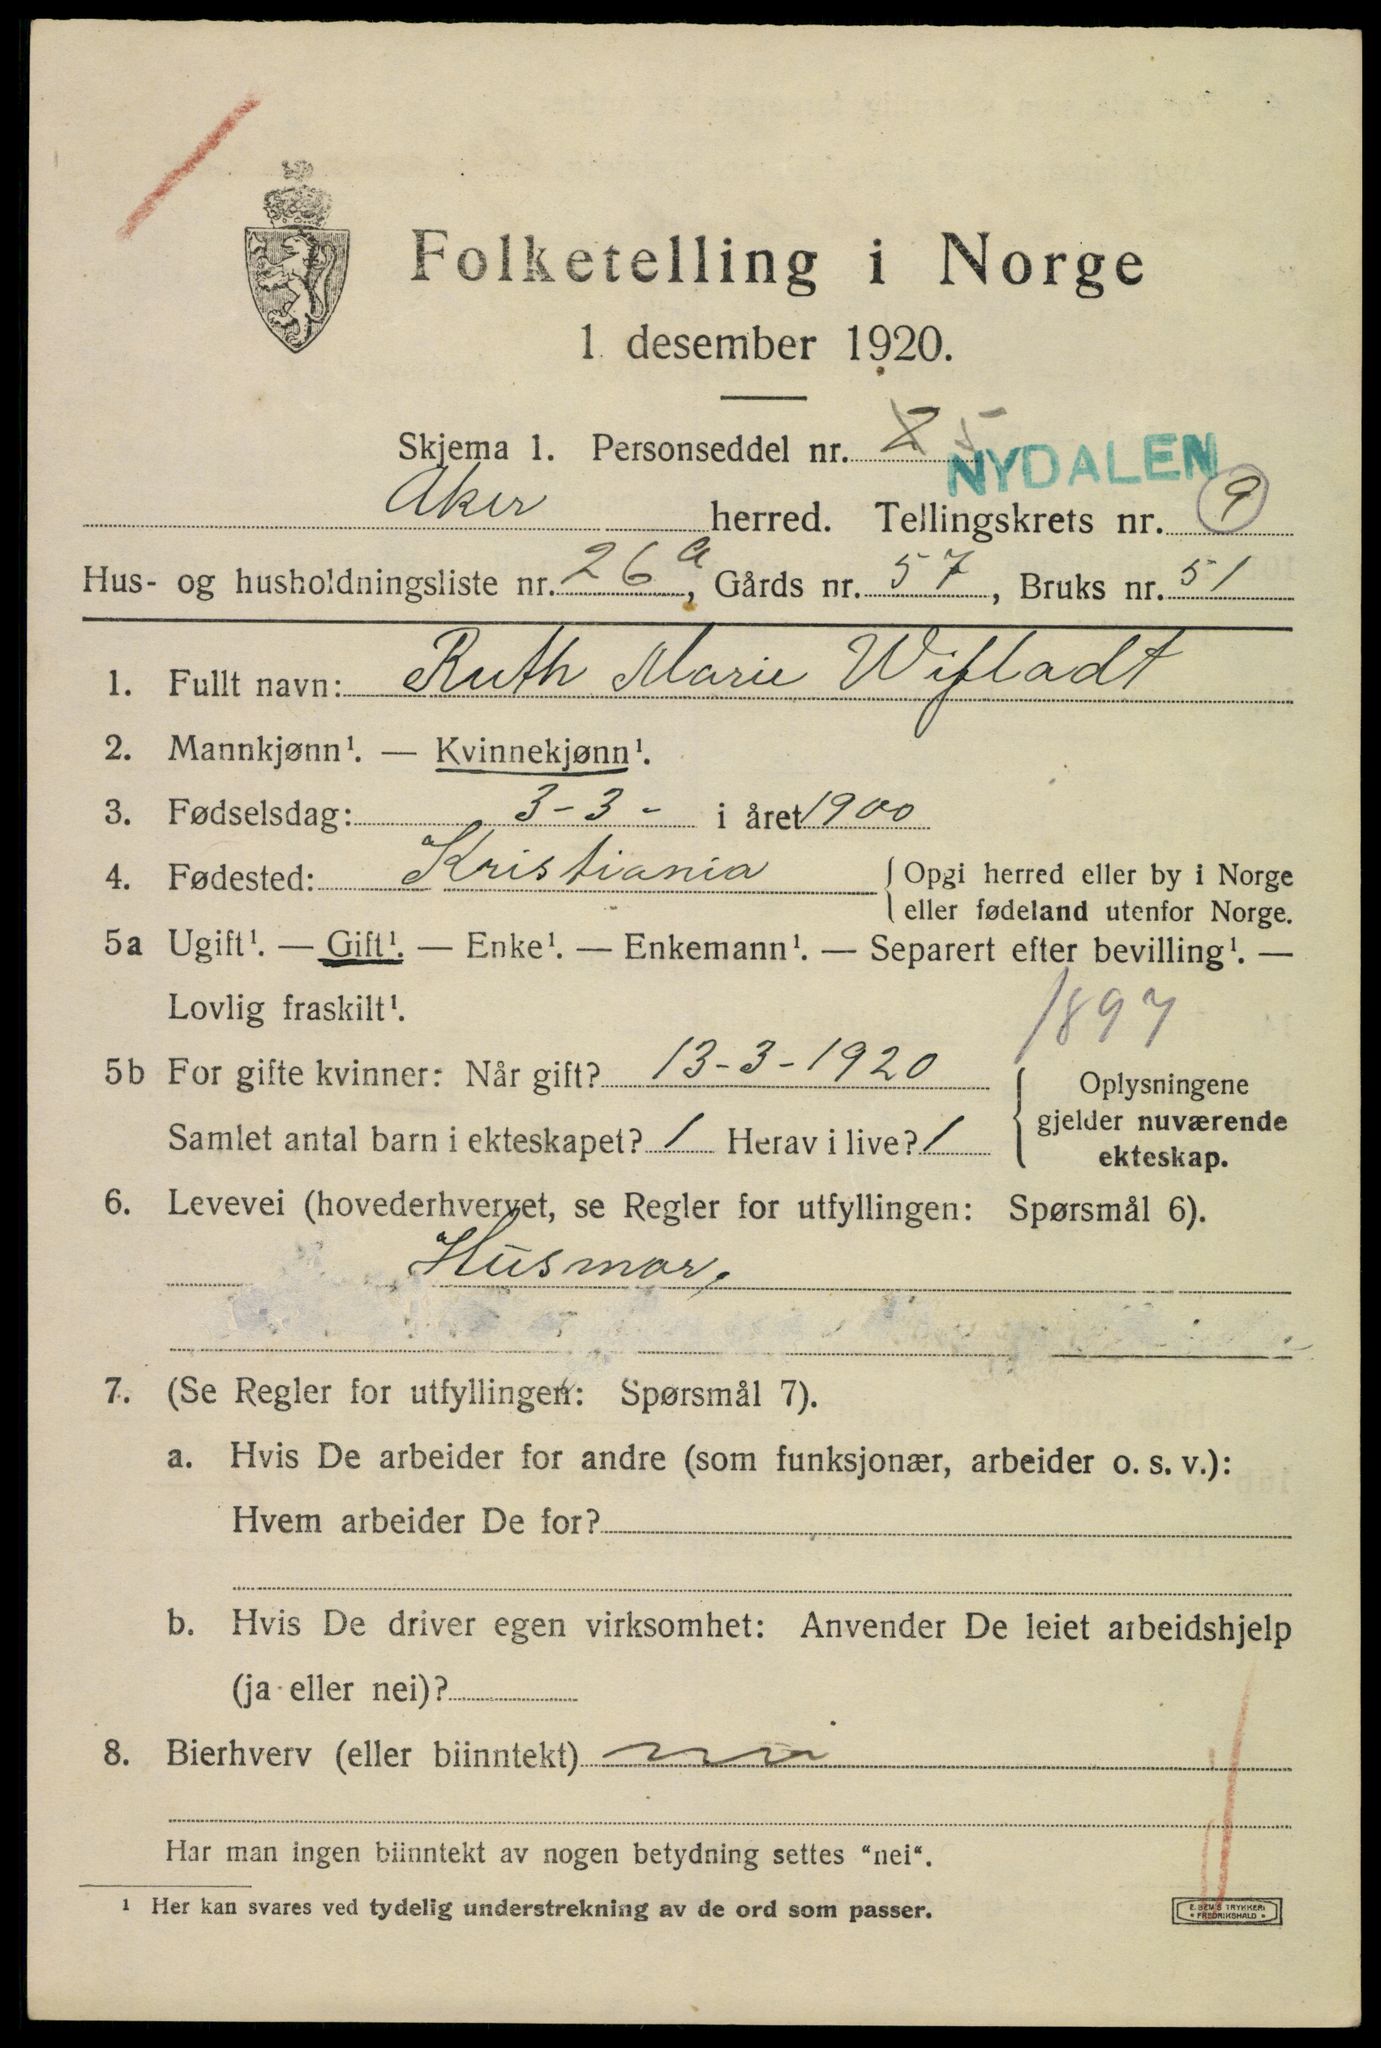 Folketelling i Norge
1. desember 1920.
Skjema 1. Personseddel nr. 2 5
NYDALEN
Aker herred. Tellingskrets nr. 9
Hus- og husholdningsliste nr. 26a, Gårds nr. 57, Bruks nr. 51
1. Fullt navn: Ruth Marie Wifladt
2. Mannkjønn¹. — Kvinnekjønn¹.
3. Fødselsdag: 3-3- i året 1900
4. Fødested: Kristiania { Opgi herred eller by i Norge
eller fødeland utenfor Norge.
5a Ugift¹. — Gift¹. — Enke¹. — Enkemann¹. — Separert efter bevilling¹. —
Lovlig fraskilt¹.
1897
5b For gifte kvinner: Når gift? 13-3-1920
Samlet antal barn i ekteskapet? 1 Herav i live? 1
Oplysningene
gjelder nuværende
ekteskap.
6. Levevei (hovederhvervet, se Regler for utfyllingen: Spørsmål 6).
Husmor,
7. (Se Regler for utfyllingen: Spørsmål 7).
a. Hvis De arbeider for andre (som funksjonær, arbeider o. s. v.):
Hvem arbeider De for?
b. Hvis De driver egen virksomhet: Anvender De leiet arbeidshjelp
(ja eller nei)?
8. Bierhverv (eller biinntekt) nei
Har man ingen biinntekt av nogen betydning settes "nei".
¹ Her kan svares ved tydelig understrekning av de ord som passer.
E. SEM'S TRYKKERI
FREDRIKSHALD